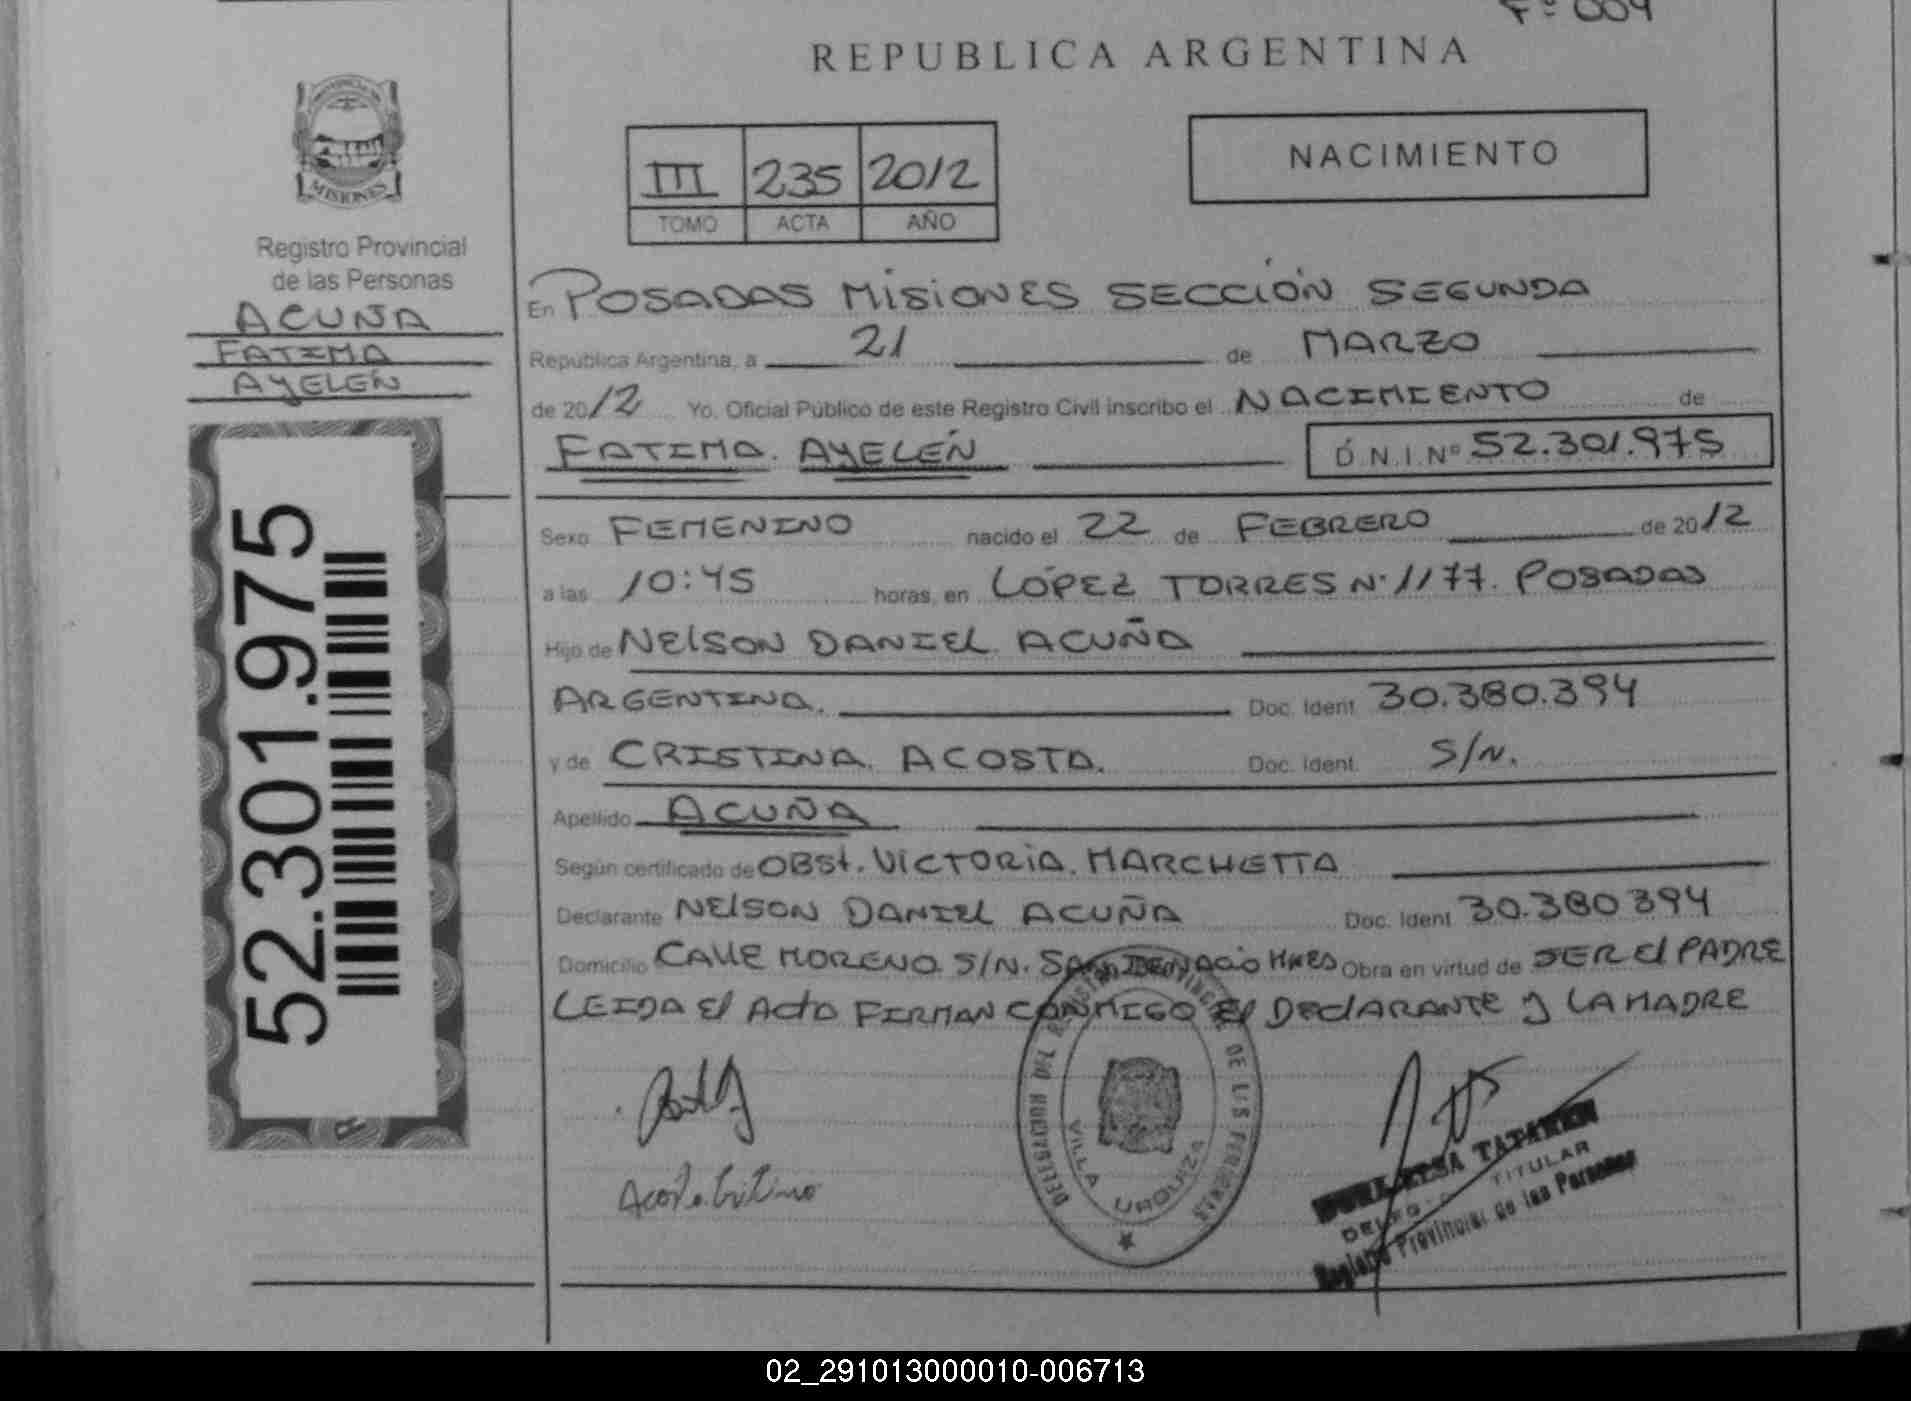 Fº 009
REPUBLICA ARGENTINA
PROVINCIA DE
MISIONES
Registro Provincial
de las Personas
ACUÑA
FATIMA
AYELÉN
52.301.975
III 235 2012
TOMO ACTA AÑO
NACIMIENTO
En POSADAS MISIONES SECCIÓN SEGUNDA
Republica Argentina, a 21 de MARZO
de 2012 Yo, Oficial Público de este Registro Civil inscribo el NACIMIENTO de
FATIMA. AYELÉN D.N.I.Nº 52.301.975
Sexo FEMENINO nacido el 22 de FEBRERO de 2012
a las 10:45 horas, en LÓPEZ TORRES Nº 1177. POSADAS
Hijo de NELSON DANIEL ACUÑA
ARGENTINA. Doc. Ident 30.380.394
y de CRISTINA. ACOSTA. Doc. Ident. S/N.
Apellido ACUÑA
Según certificado de OBSt. VICTORIA. MARCHETTA
Declarante NELSON DANIEL ACUÑA Doc. Ident 30.380394
Domicilio CALLE MORENO S/N. SAN IGNACIO MNES Obra en virtud de SER El PADRE
LEIDA El ActA FIRMAN CONMIGO El DEClARANTE y LA MADRE
Acosta Cristina
VILLA URQUIZA
TITULAR
Registro Provincial de las Personas
02_291013000010-006713